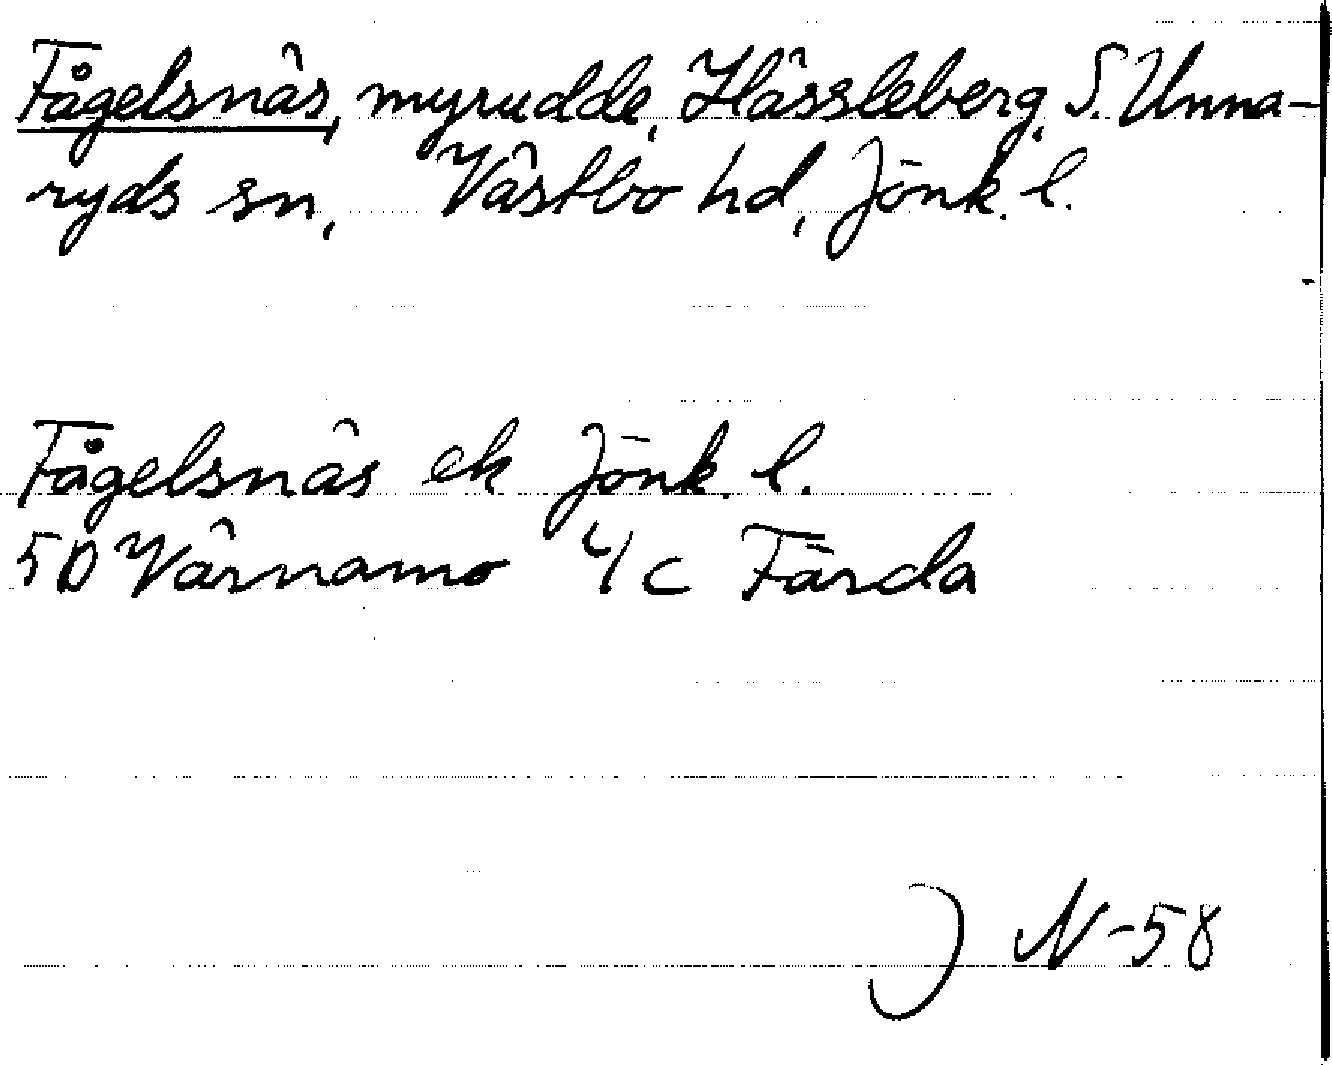 Fågelsnäs, myrudde, Hässleberg, S. Unna-
ryds sn, Västbo hd, Jönk. l.
Fågelsnäs ek Jönk. l.
5D Värnamo 4/c Färda
J N-58